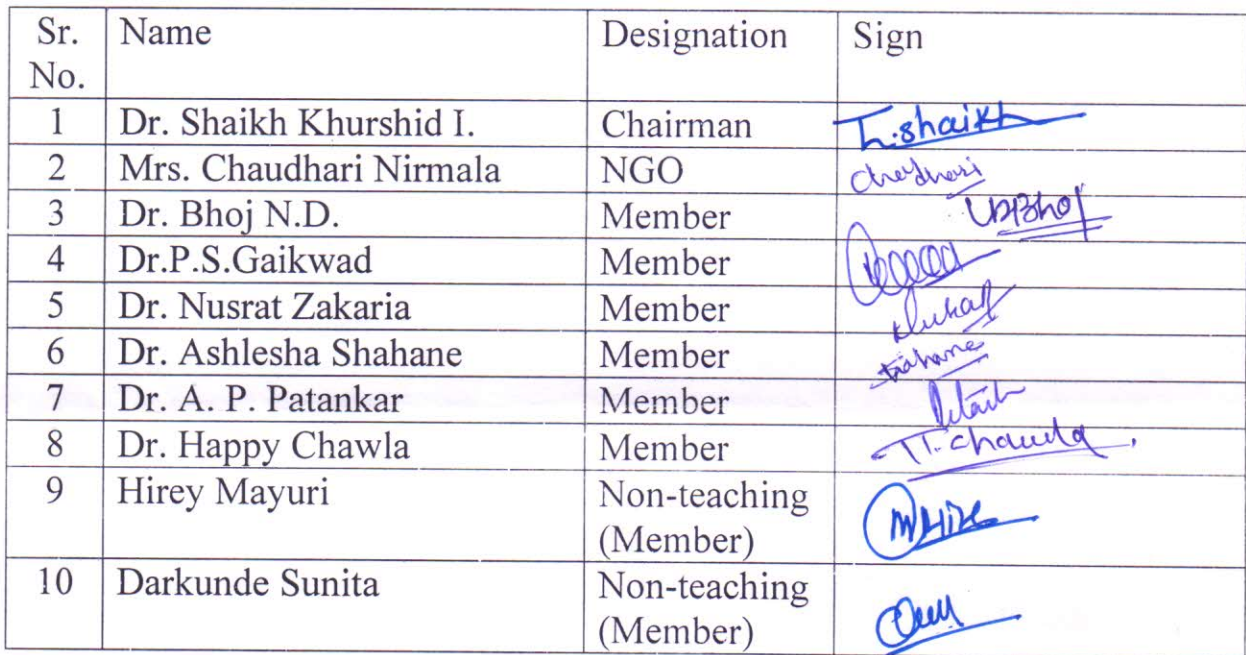 Sr. No. Name Designation Sign
1 Dr. Shaikh Khurshid I. Chairman h.shaikh
2 Mrs. Chaudhari Nirmala NGO Chaudhari
3 Dr. Bhoj N.D. Member NDBhoj
4 Dr.P.S.Gaikwad Member
5 Dr. Nusrat Zakaria Member
6 Dr. Ashlesha Shahane Member Shahane
7 Dr. A. P. Patankar Member
8 Dr. Happy Chawla Member H.chawla
9 Hirey Mayuri Non-teaching (Member)
10 Darkunde Sunita Non-teaching (Member)